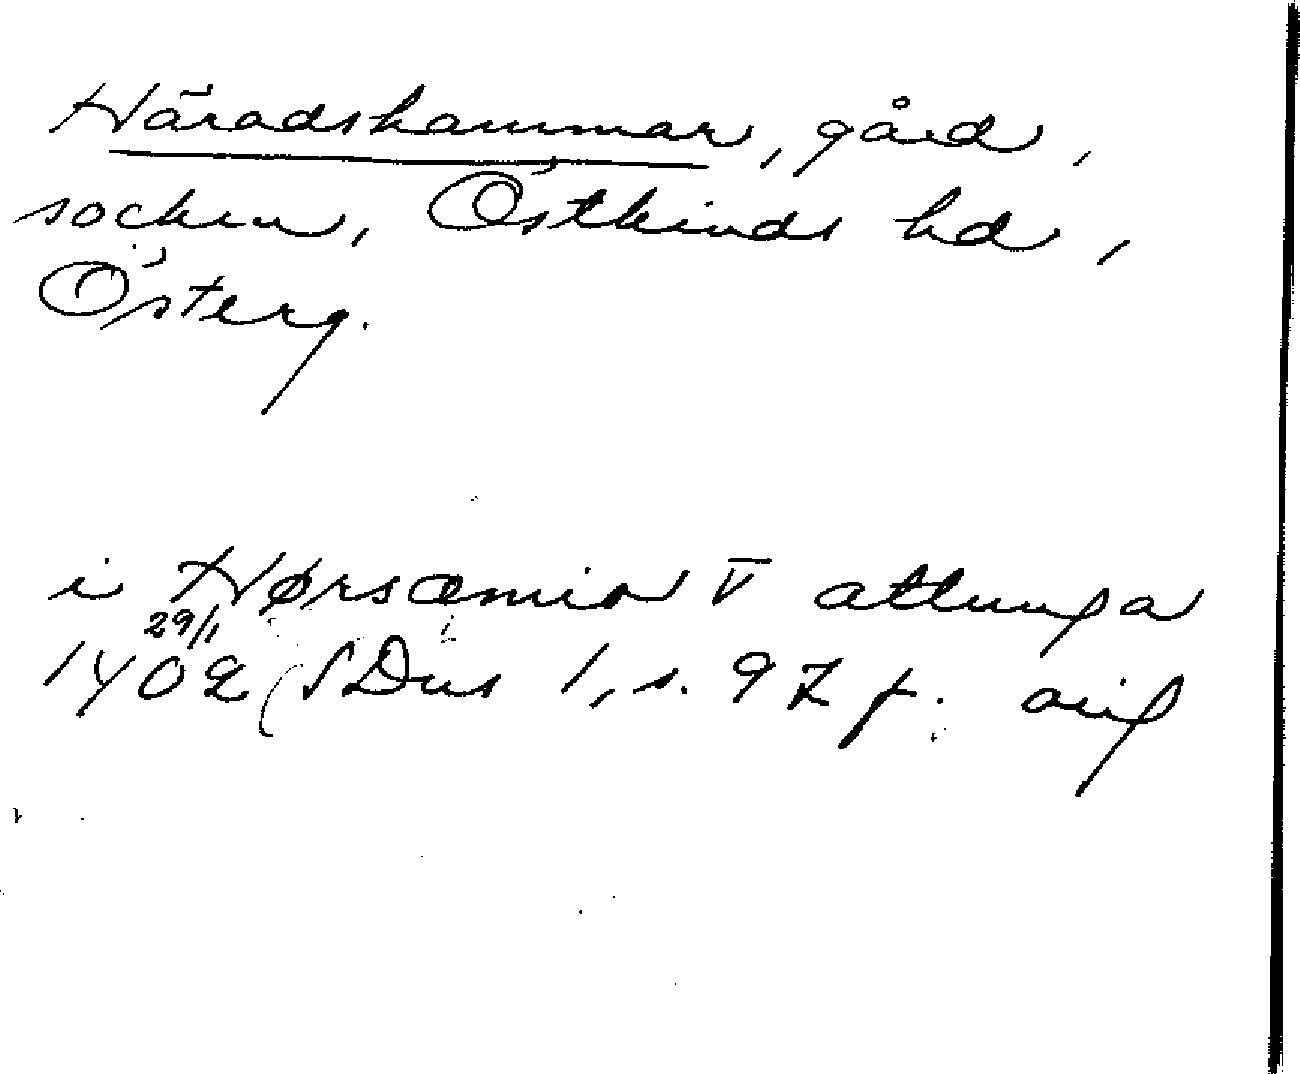 Häradshammar, gård,
socken, Östkinds hd,
Österg.
i Hørsæmia V attunga
29/1
1402 (SDns 1, s. 97 f. orig